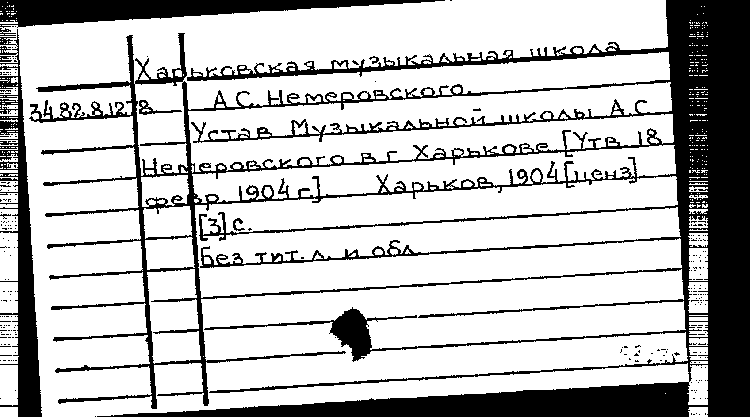 Харьковская музыкальная школа
34.82.8.1278 А.С. Немеровского.
Устав Музыкальной школы А.С.
Немеровского в г. Харькове. [Утв. 18
февр. 1904 г.]. Харьков, 1904 [ценз].
[3] с.
Без тит. л. и обл.